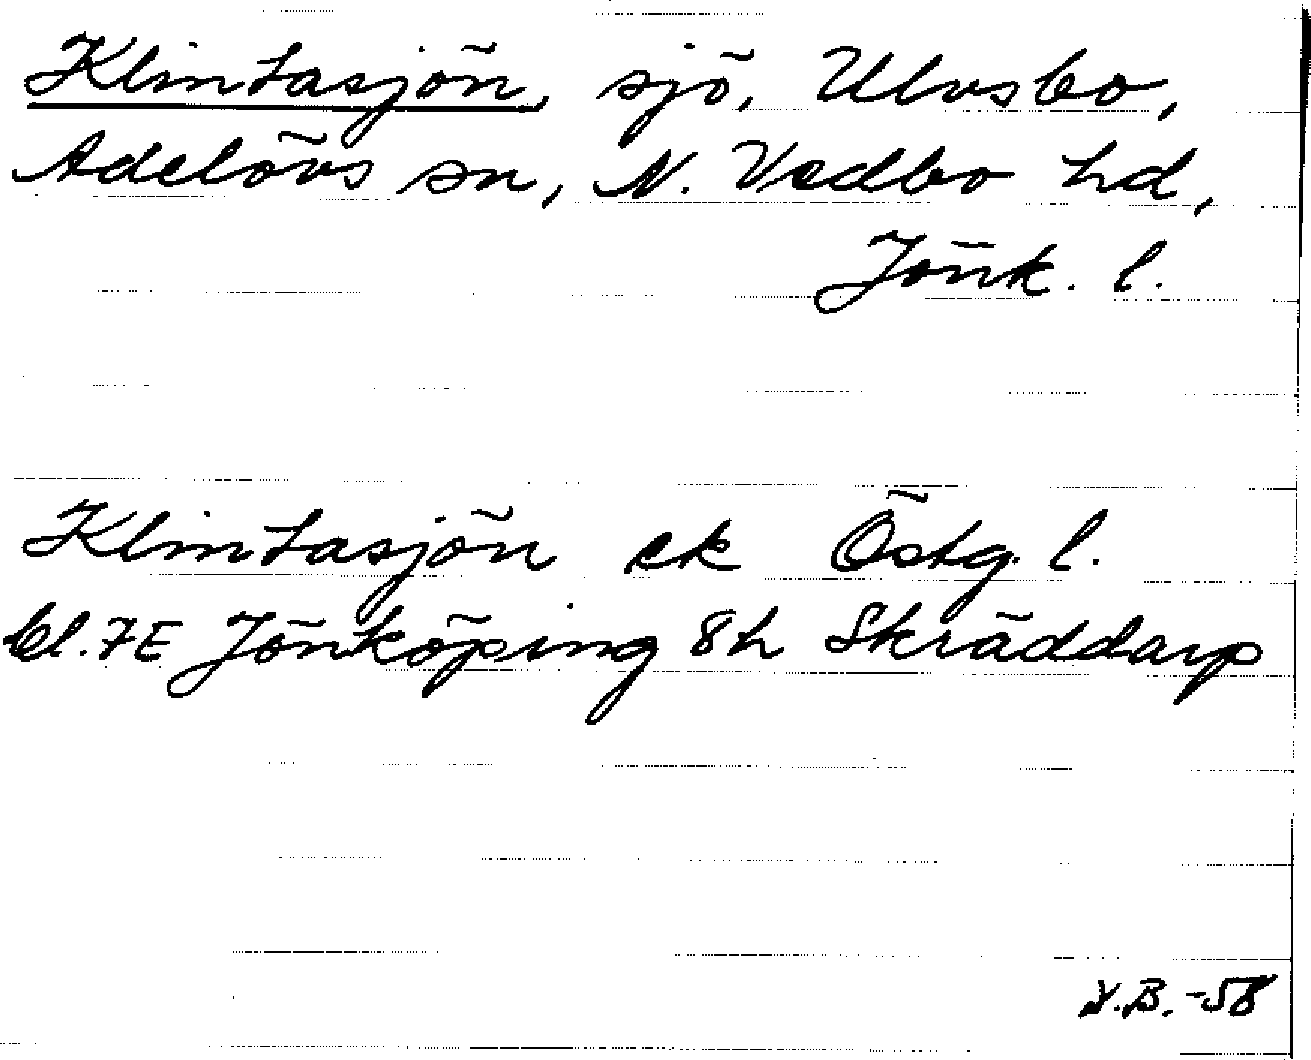 Klintasjön, sjö, Ulvsbo,
Adelövs sn, N. Vedbo hd,
Jönk. l.
Klintasjön ek Östg. l.
bl. 7E Jönköping 8h Skräddarp
V.B. -58